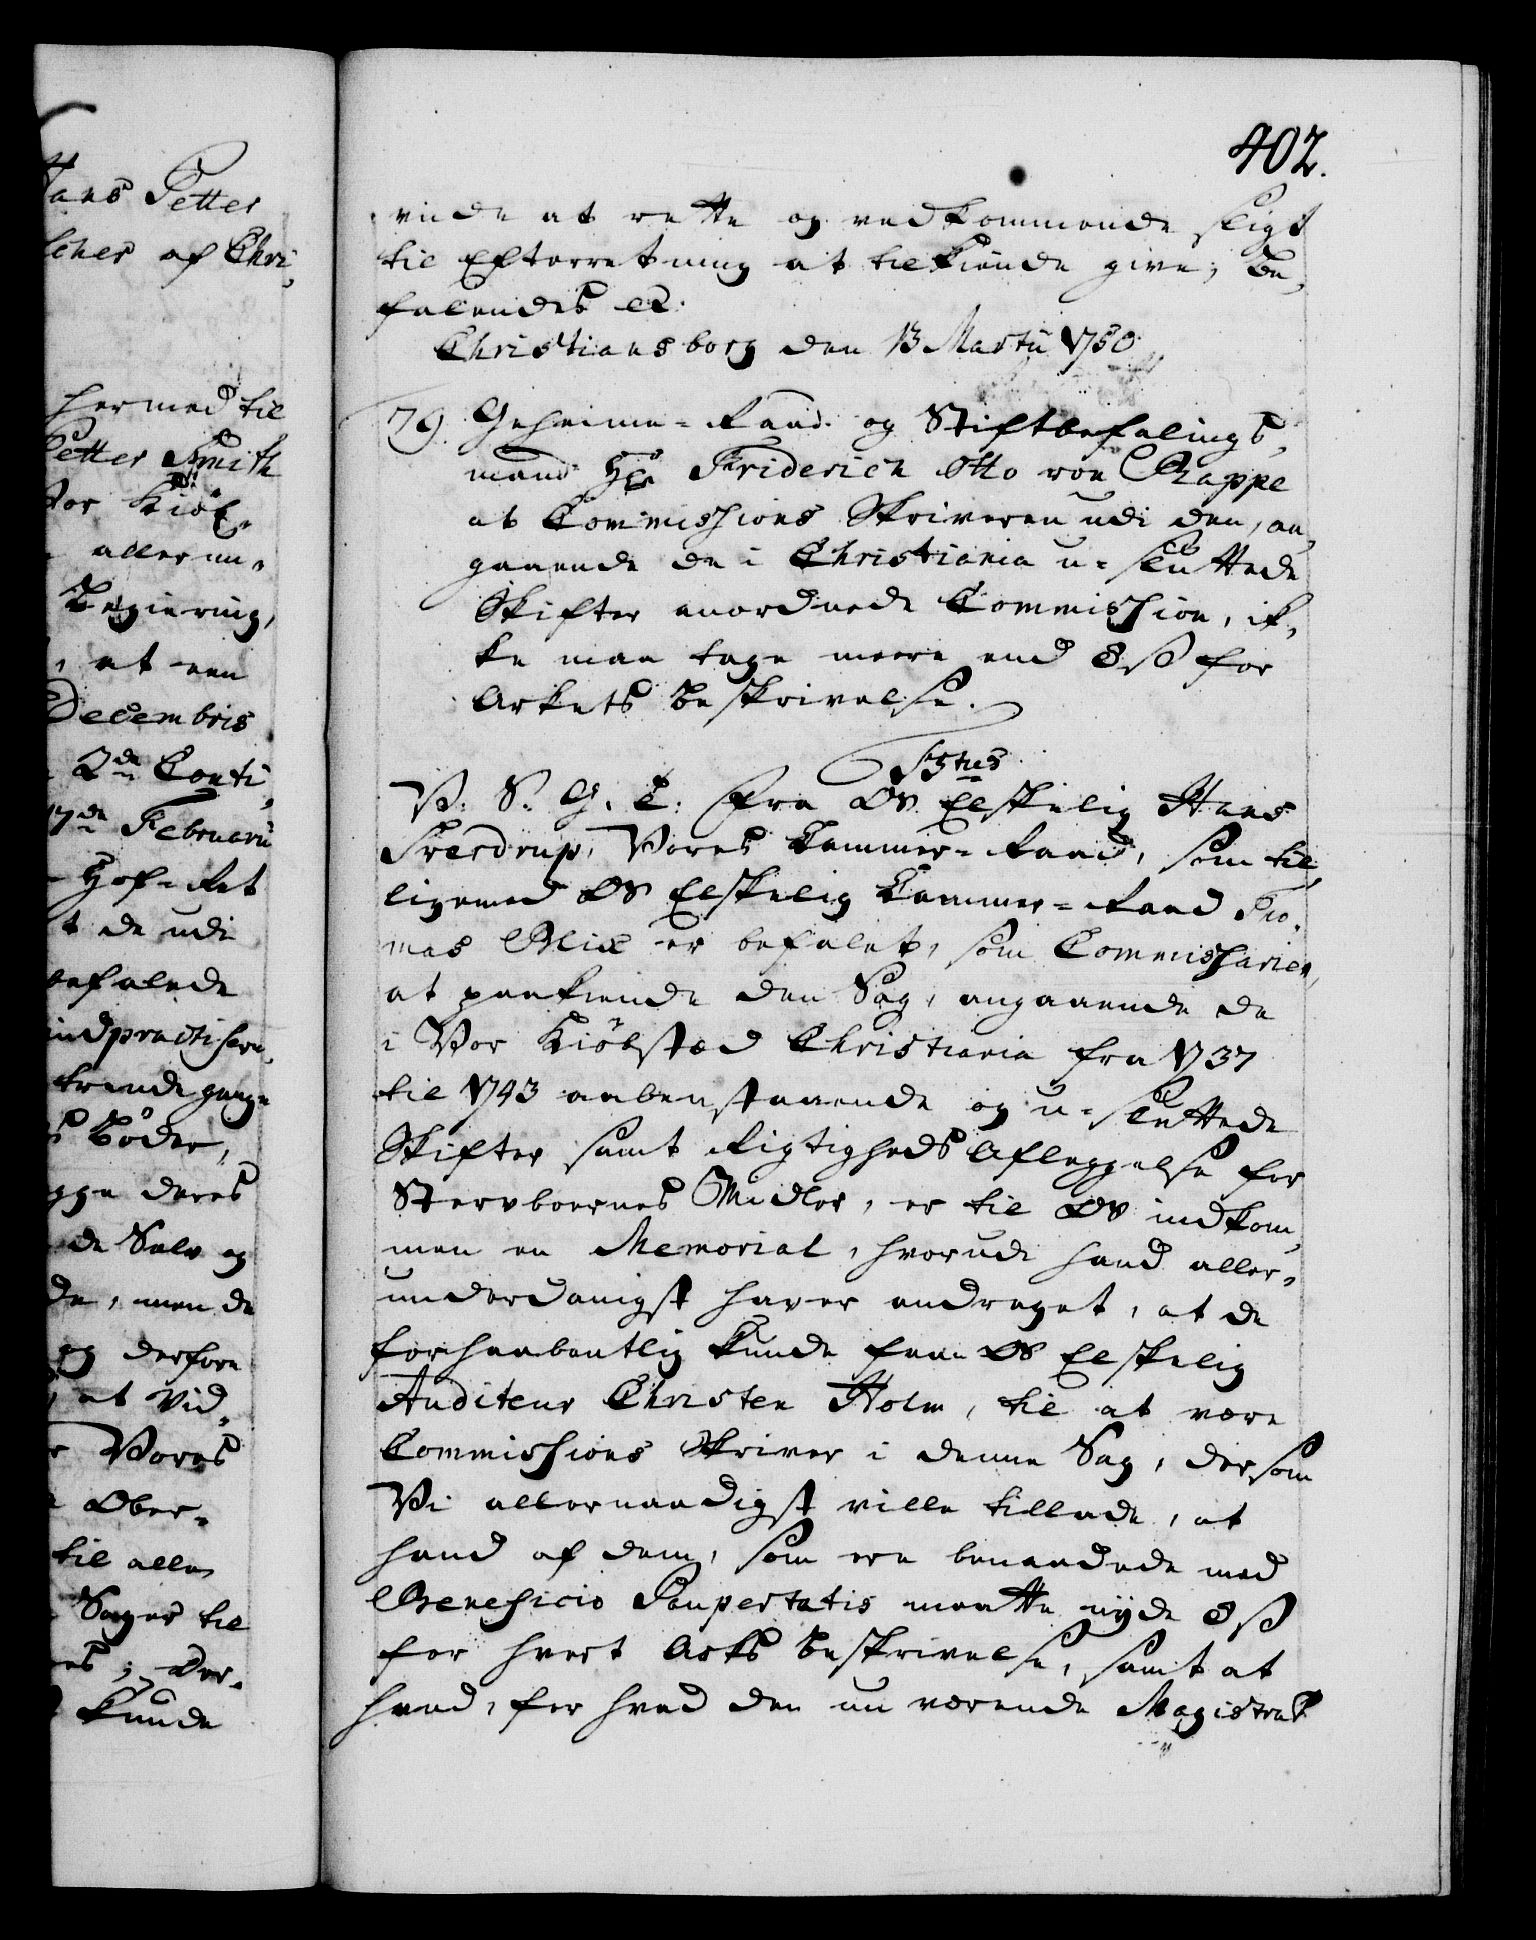 Hans Petter
lcher af Chri,
hermed til
Petter Smith
Vor Kiöb,
allerun,
Begiering,
at een
Decembris
2de Conti,
17de Februarii
Hof-Ret
t de udi
befalede
indpractisere,
trende gange
Bøder,
gge deres
de Selv og
de, men de
og derfore
at Vid,
r Vores
Ober,
til alle
Sager til
es; Der,
kunde
402.
vide at rette og vedkommende sligt
til Efterretning at tilkiende give; Be,
falendes etc.
Christiansborg den 13 Martii 1750
79. Geheime-Raad og Stiftbefalings,
mand Hr Friderich Otto von Rappe
at Commissions Skriveren udi den, an,
gaaende de i Christiania u-sluttede
Skifter anordnede Commission, ik,
ke maa tage meere end 8 ß for
Arkets Beskrivelse.
F5tus
V. S. G. T. Efter Os Elskelig Hans
Sverdrup, Vores Cammer-Raad, som til,
ligemed Os Elskelig Cammer-Raad Tho,
mas Blix er befalet, som Commissarier,
at paakiende den Sag, angaaende de
i Vor Kiöbstæd Christiania fra 1737
til 1743 aabenstaaende og u-sluttede
Skifter samt Rigtigheds Afleggelse for
Stervboernes Midler, er til Os indkom,
men en Memorial, hvorudi hand aller,
underdanigst haver andraget, at de
forhaabentlig kunde faae Os Elskelig
Auditeur Christen Holm, til at være
Commissions Skriver i denne Sag, dersom
Vi allernaadigst ville tillade, at
hand af dem, som ere benaadede med
Beneficio Paupertatis maatte nyde 8 ß
for hvert Arks Beskrivelse, samt at
hvad, for hvad den nu værende Magistrat